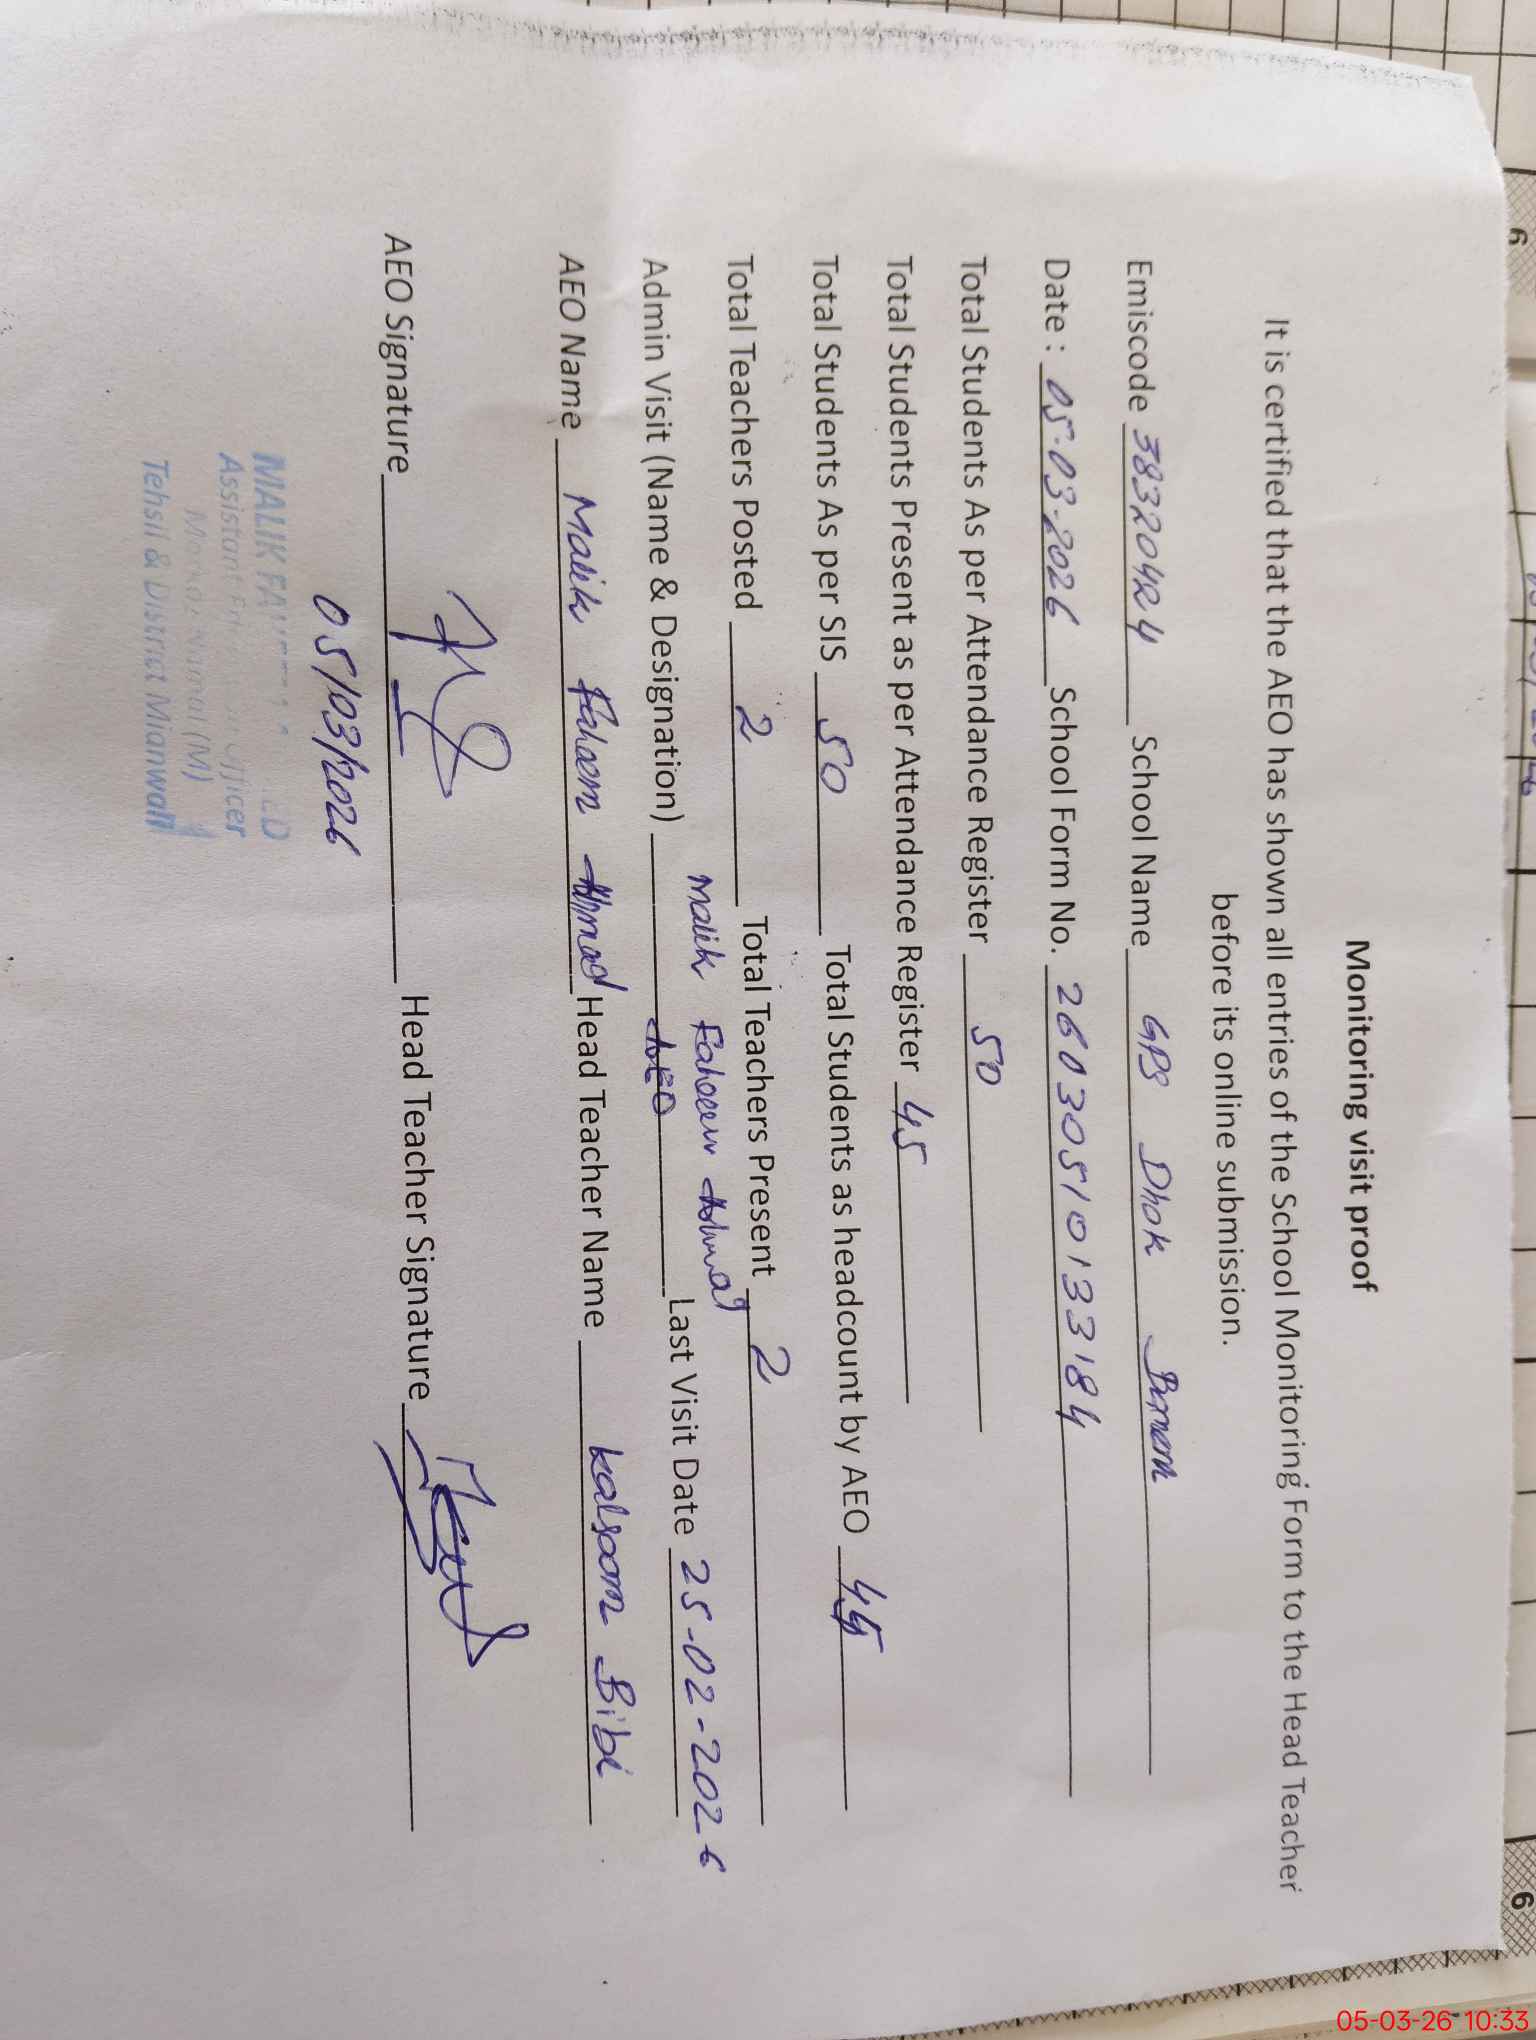 Monitoring visit proof
It is certified that the AEO has shown all entries of the School Monitoring Form to the Head Teacher
before its online submission.
Emiscode 38320424 School Name GPS Dhok
Date : 05-03-2026 School Form No. 2603051013384
Total Students As per Attendance Register 50
Total Students Present as per Attendance Register 45
Total Students As per SIS 50 Total Students as headcount by AEO 45
Total Teachers Posted 2 Total Teachers Present 2
Malik Faheem Ahmad
Admin Visit (Name & Designation) AEO Last Visit Date 25-02-2026
AEO Name Malik Faheem Ahmad Head Teacher Name Kalsoom Bibi
AEO Signature Head Teacher Signature
05/03/2026
MALIK
Assistant Officer
(M)
Tehsil & District Mianwali
6
6
05-03-26 10:33